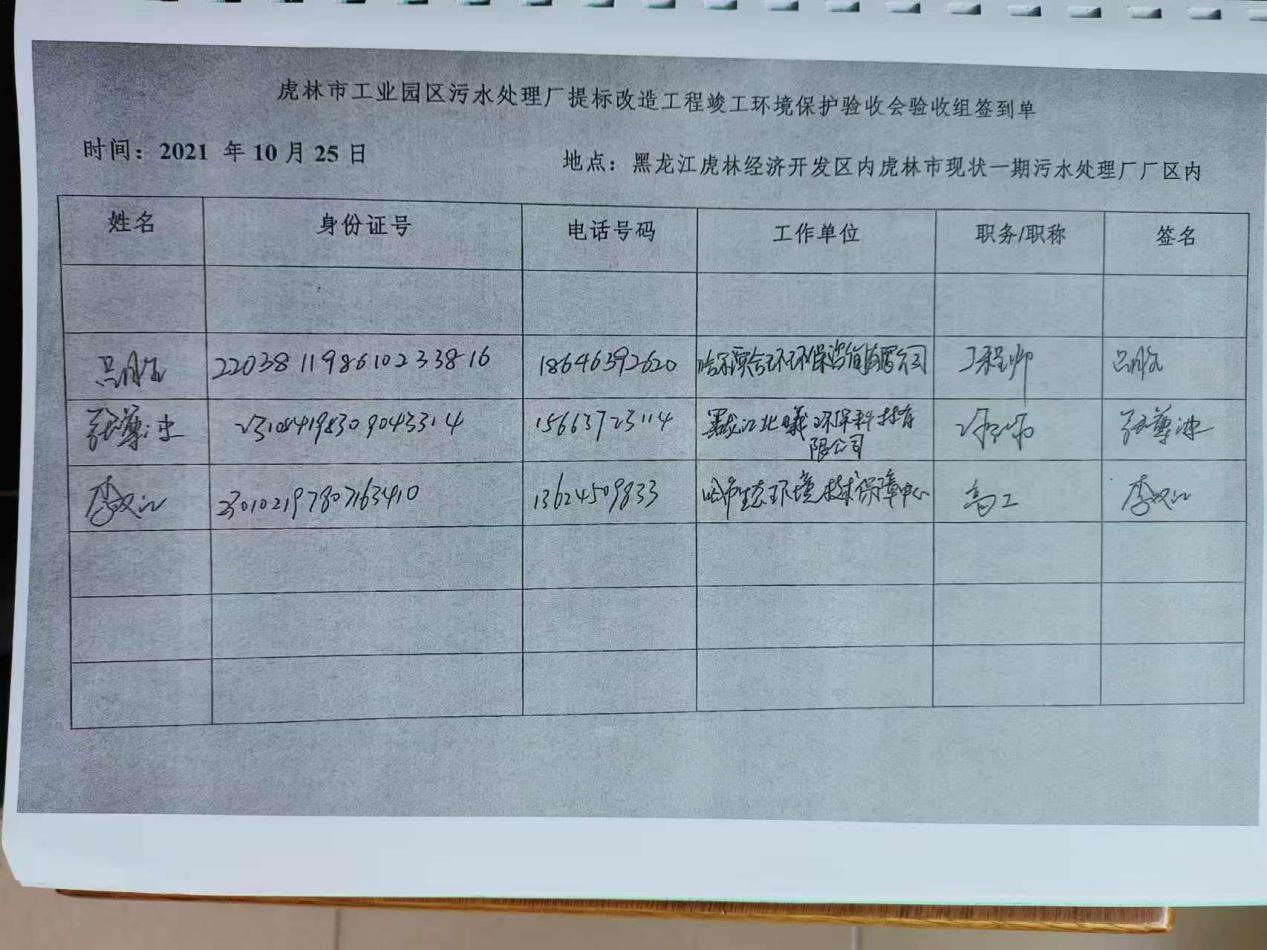 虎林市工业园区污水处理厂提标改造工程竣工环境保护验收会验收组签到单
时间：2021 年 10 月 25 日
地点：黑龙江虎林经济开发区内虎林市现状一期污水处理厂厂区内
姓名 身份证号 电话号码 工作单位 职务/职称 签名
220381198610233816 18646392620 工程师
张尊 231084198309043314 15663723114 黑龙江北曦环保科技有
限公司 张尊
李双江 230102197807163410 13624509833 哈市生态环境技术保障中心 高工 李双江